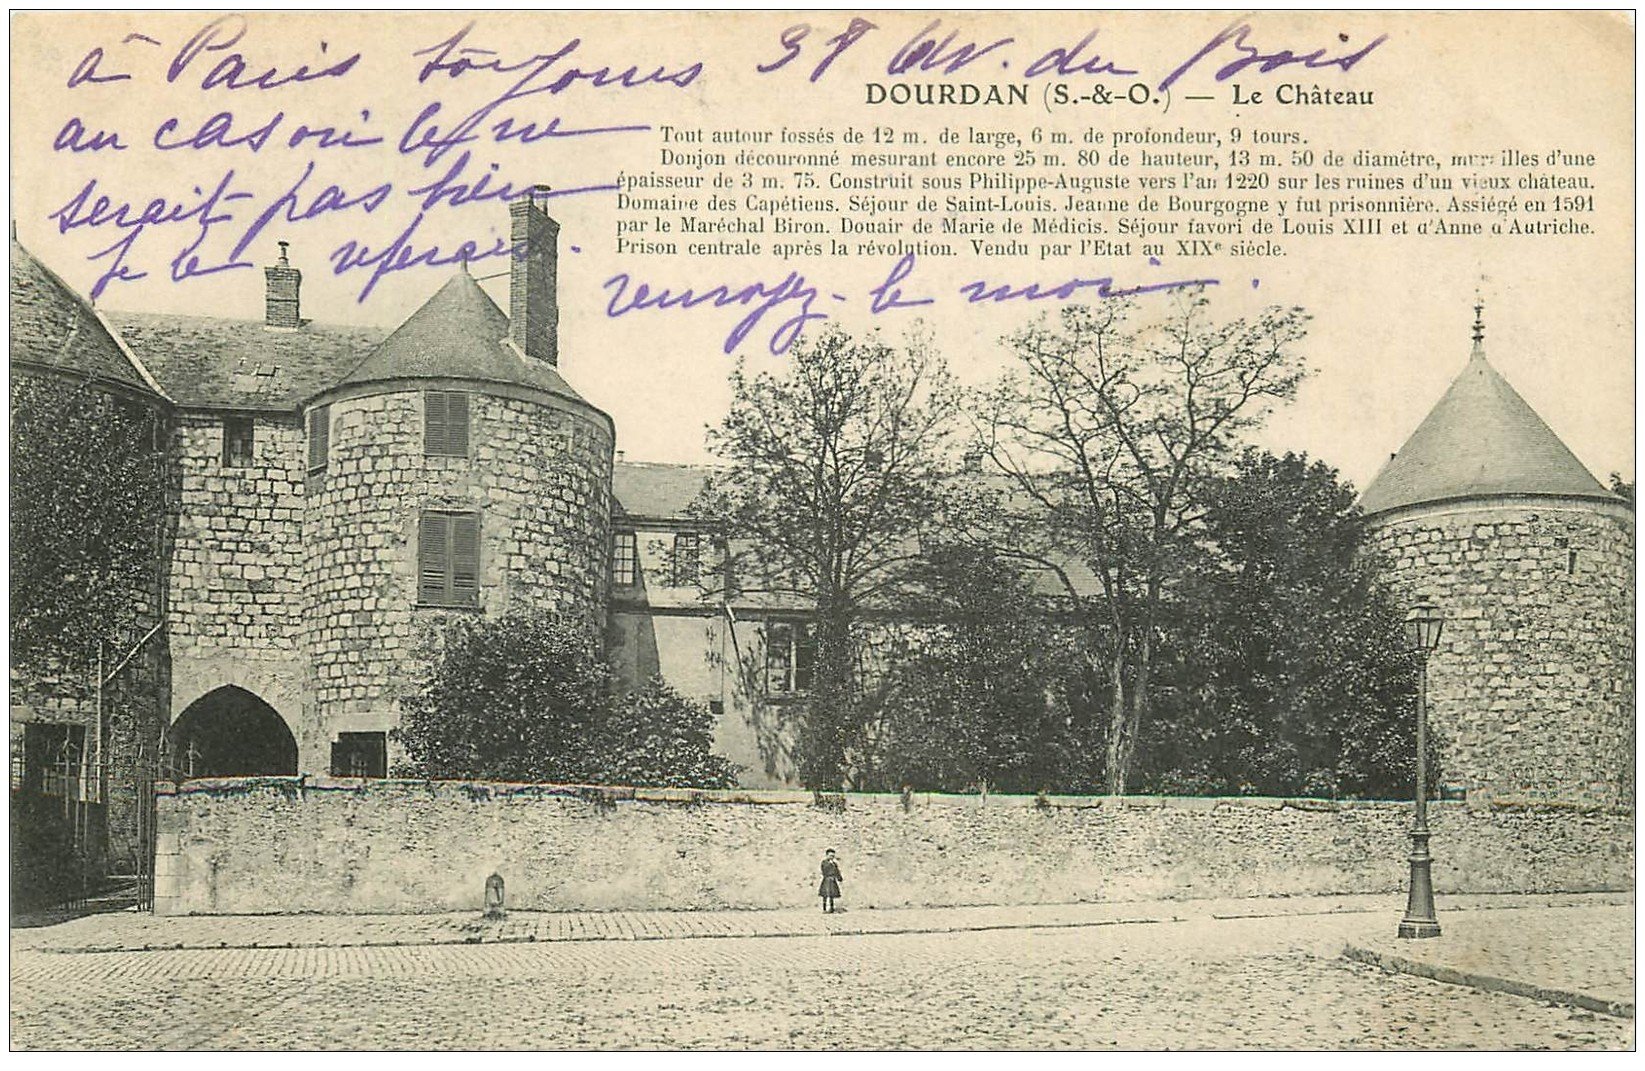 à Paris toujours 37 av. du Bois
au cas où le ne
serait pas bien
je le referais.
renvoyez-le moi.
DOURDAN (S.-&-O.) — Le Château
Tout autour fossés de 12 m. de large, 6 m. de profondeur, 9 tours.
Donjon découronné mesurant encore 25 m. 80 de hauteur, 13 m. 50 de diamètre, murailles d'une
épaisseur de 3 m. 75. Construit sous Philippe-Auguste vers l'an 1220 sur les ruines d'un vieux château.
Domaine des Capétiens. Séjour de Saint-Louis. Jeanne de Bourgogne y fut prisonnière. Assiégé en 1591
par le Maréchal Biron. Douair de Marie de Médicis. Séjour favori de Louis XIII et d'Anne d'Autriche.
Prison centrale après la révolution. Vendu par l'Etat au XIXe siècle.